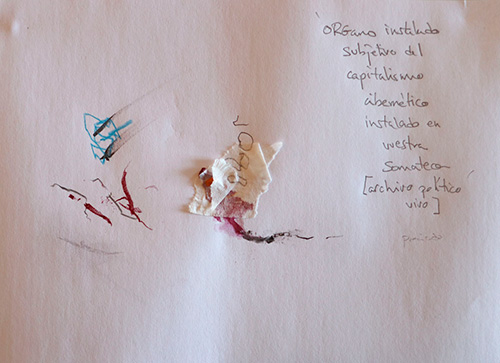 'ORGano instalado
subjetivo del
capitalismo
cibernético
instalado en
nuestra
Somateca
[archivo político
vivo]